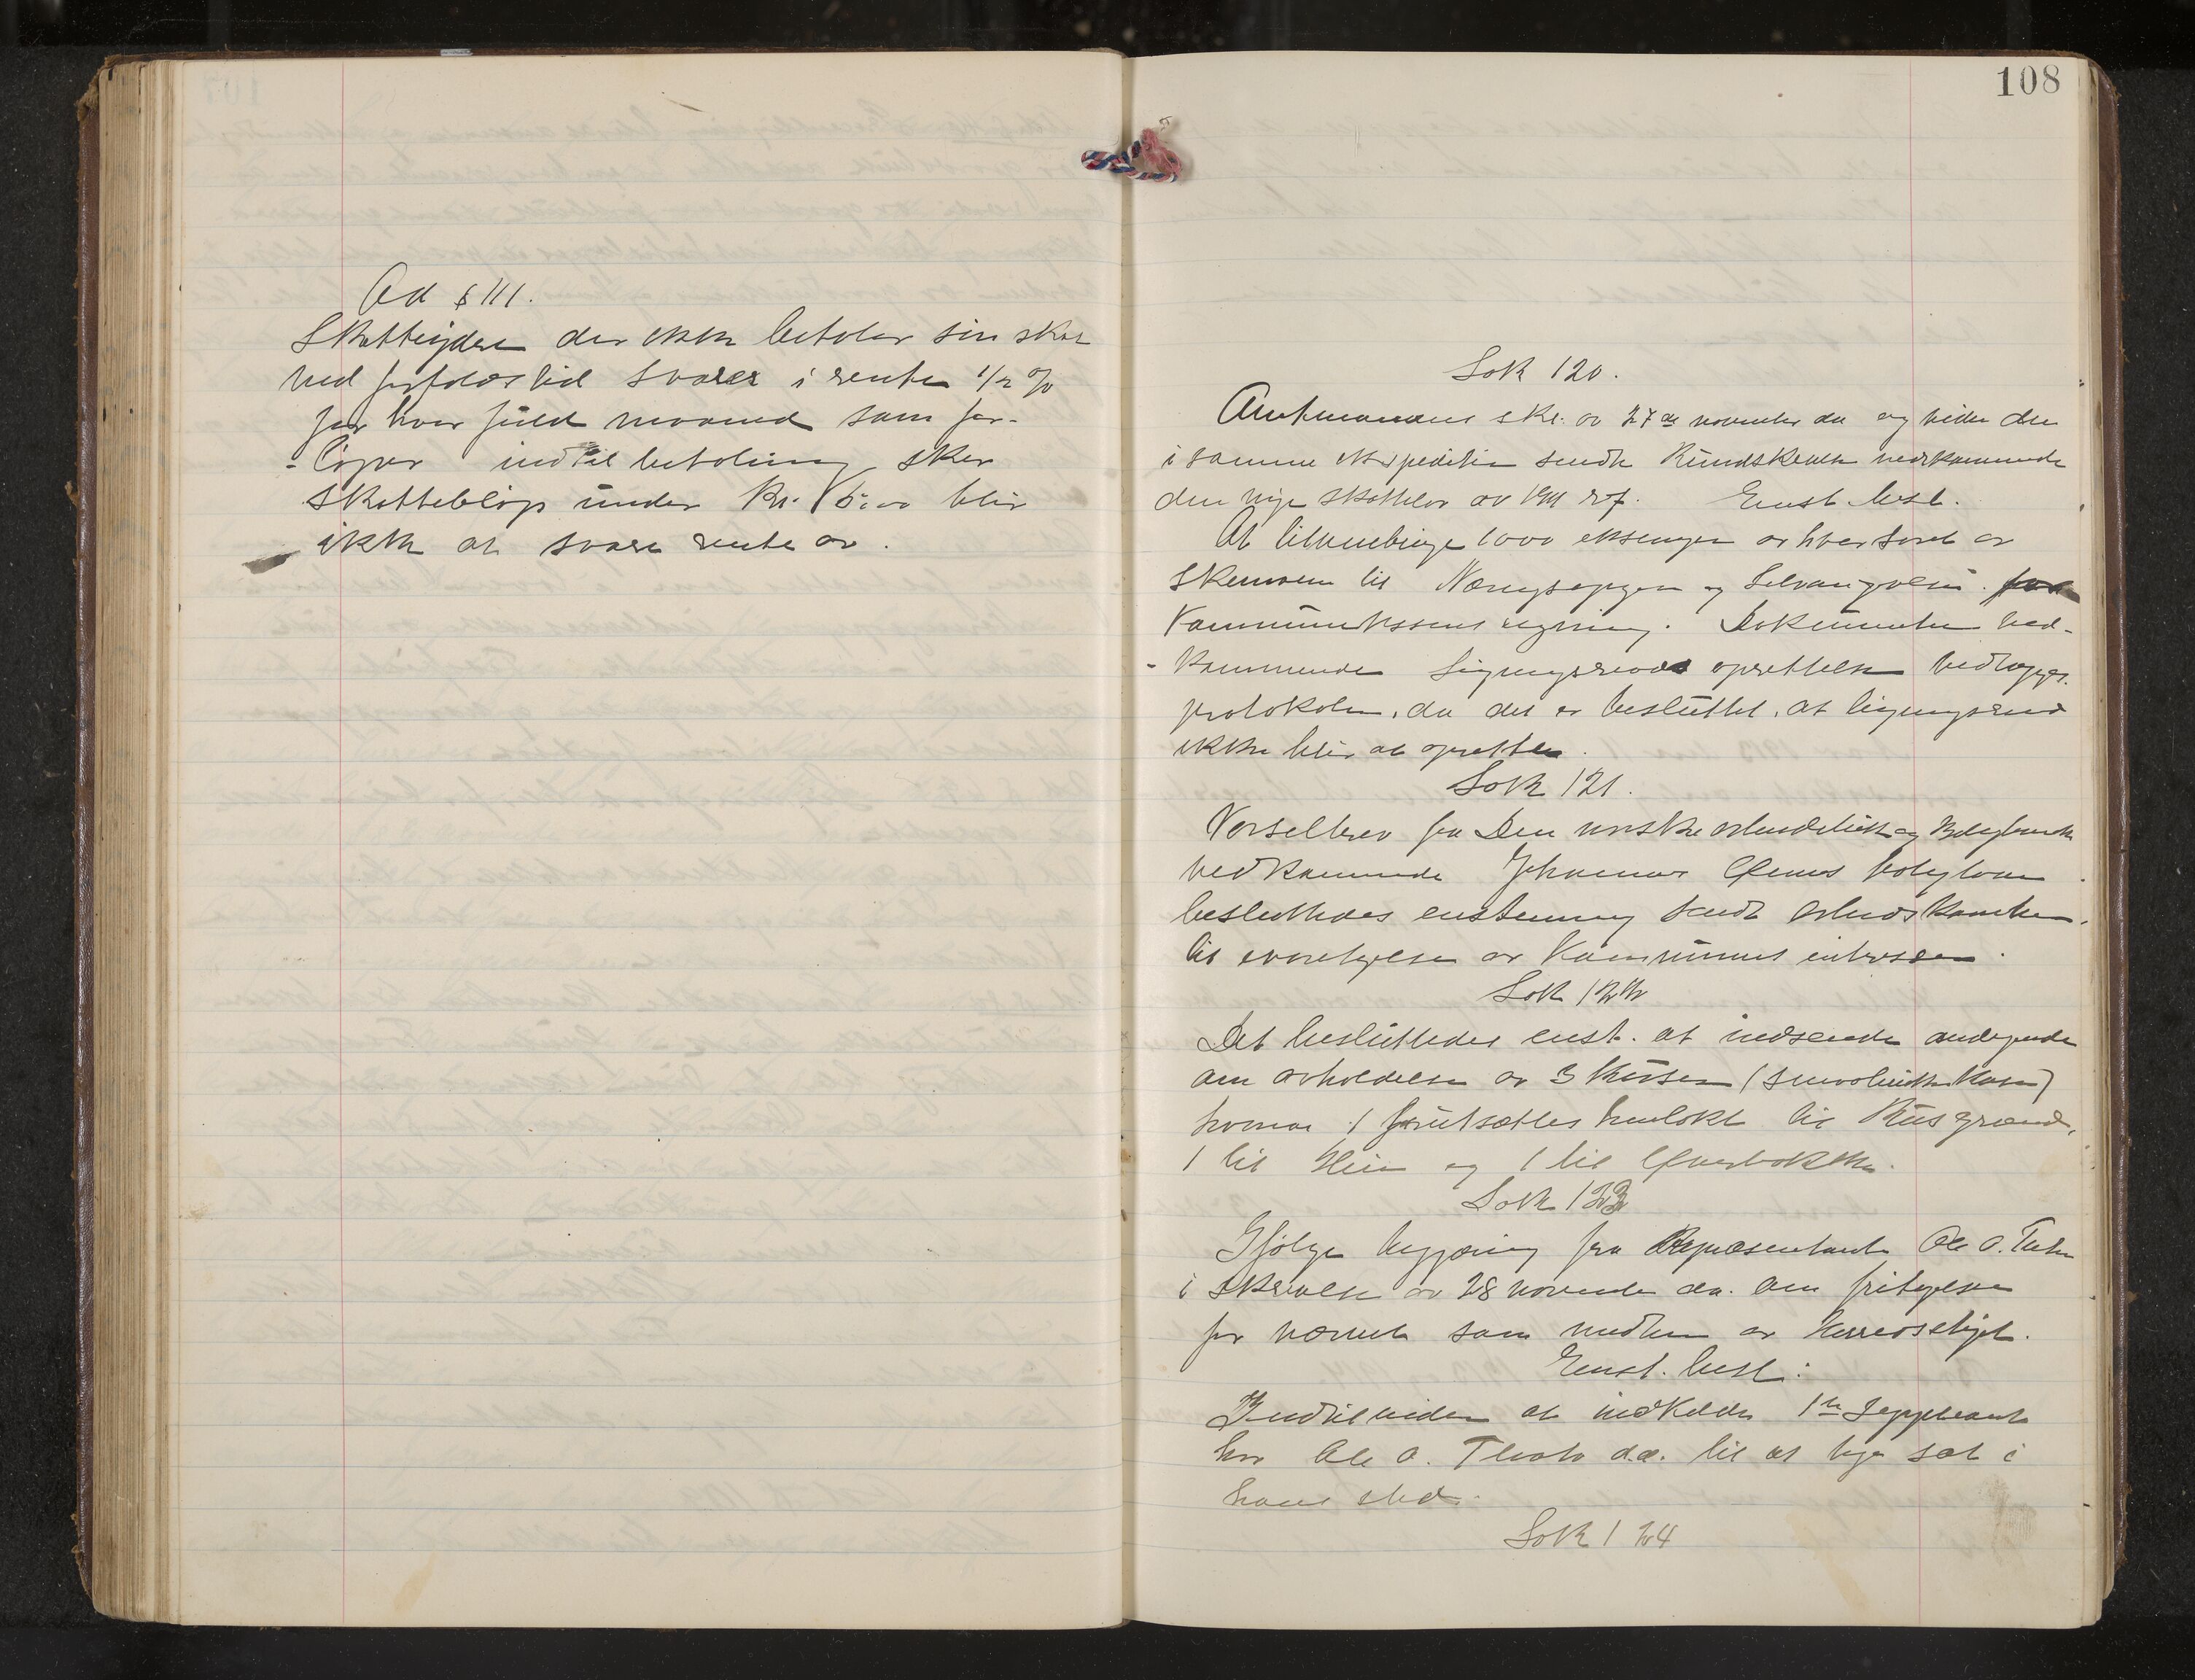 Ad § 111.
Skatteydere der ikke betaler sin skat
ved forfaldstid svarer i rente 1/2 %
for hver fuld maaned som for-
-løper indtil betaling sker
Skattebeløp under kr. 5.00 blir
ikke at svare rente av.
108
Sak 120.
Amtmandens skr. av 27de november da og viden den
i samme ekspedition sendte Rundskrivelse vedkommende
den nye skattelov av 1911 ref. Enst. besl.
At tilveiebringe 1000 eksempl av hver sort av
Skemaen til Næringsopgave og Selvangivelse
Kommunekassens regning. Dokumenter ved-
-kommende ligningsraads oprettelse vedlægges
protokolen, da det er besluttet, at ligningsraad
ikke blir at oprettes.
Sak 121.
Varselbrev fra Den norske Arbeiderbruk og Boligbank
vedkommende Johannes boliglaan
besluttedes enstemmig sendt
til ivaretagelse av Kommunens interesser.
Sak 122
Det besluttedes enst. at indsende andragende
om avholdelse av 3 Kurser (smaabrukerkurser)
hvorav 1 forutsættes henlakt til
1 til og 1 til
Sak 123
Ifølge begjæring fra Repræsentant Ole O.
i Skrivelse av 28 november da. om fritagelse
for hvervet som medlem av Herredsstyret.
Enst. besl:
Indtil videre at indkalde 1ste Suppleant
hr Ole O. d.æ. til at tage sæt i
hans sted.
Sak 124